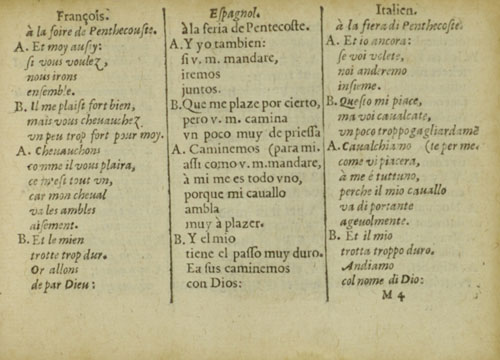 François.
à la foire de Penthecouste.
A. Et moy aussy:
si vous voulez,
nous irons
ensemble.
B. Il me plaist fort bien,
mais vous cheuauchez
vn peu trop fort pour moy.
A. Cheuauchons
comme il vous plaira,
ce m'est tout vn,
car mon cheual
va les ambles
aisement.
B. Et le mien
trotte trop dur.
Or allons
de par Dieu:
Espagnol.
à la feria de Pentecoste.
A. Y yo tambien:
si v. m. mandare,
iremos
juntos.
B. Que me plaze por cierto,
pero v. m. camina
vn poco muy de priessa
A. Caminemos (para mi.
assi como v. m. mandare,
à mi me es todo vno,
porque mi cauallo
ambla
muy à plazer.
B. Y el mio
tiene el passo muy duro.
Ea sus caminemos
con Dios:
Italien.
à la fiera di Penthecoste.
A. Et io ancora:
se voi volete,
noi anderemo
insieme.
B. Questo mi piace,
ma voi caualcate,
vn poco troppo gagliardamẽ
A. Caualchiamo (te per me.
come vi piacera,
à me é tuttuno,
perche il mio cauallo
va di portante
ageuolmente.
B. Et il mio
trotta troppo duro.
Andiamo
col nome di Dio:
M 4